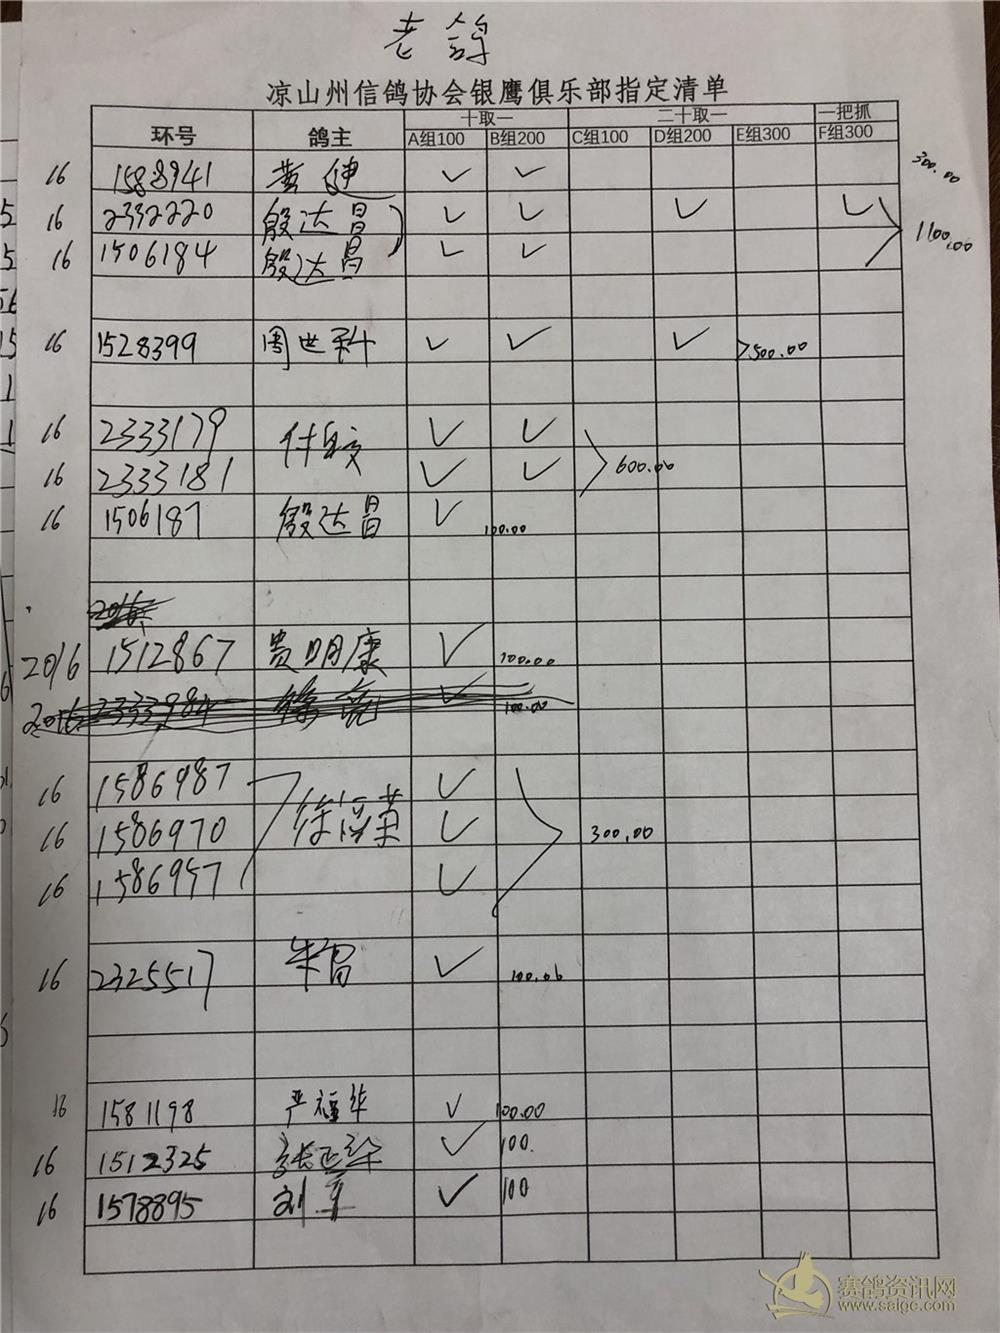 老鸽
凉山州信鸽协会银鹰俱乐部指定清单
环号 鸽主 十取一 二十取一 一把抓
A组100 B组200 C组100 D组200 E组300 F组300
16 1588941 黄健 ✓ ✓ 300.00
16 2332220 殷达昌 ✓ ✓ ✓ ✓
16 1506184 殷达昌 ✓ ✓ 1100.00
16 1528399 周世科 ✓ ✓ ✓ 500.00
16 2333179 ✓ ✓
付 600.00
16 2333181 ✓ ✓
16 1506187 殷达昌 ✓ 100.00
2016 1512867 贵明康 ✓ 100.00
2016 2333984 ✓ 100.00
16 1586987 ✓
16 1586970 徐 ✓ 300.00
16 1586957 ✓
16 2325517 ✓ 100.00
16 1581198 严福华 ✓ 100.00
16 1512325 张正华 ✓ 100.
16 1578895 刘军 ✓ 100
赛鸽资讯网
www.saigc.com